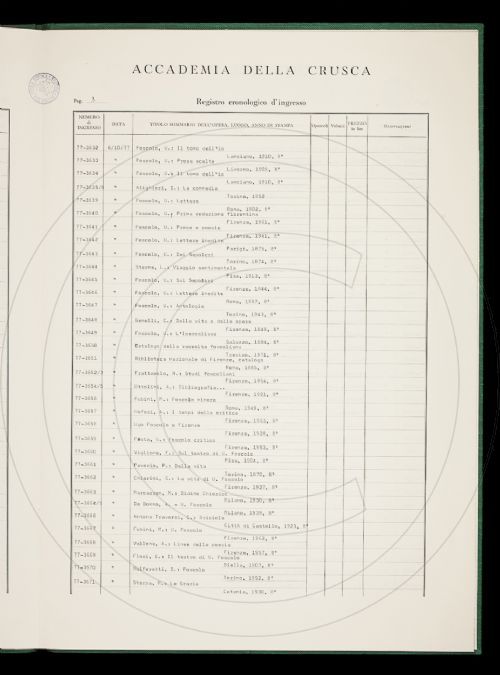 ACCADEMIA DELLA CRUSCA
Pag. 3
Registro cronologico d'ingresso
NUMERO di INGRESSO DATA TITOLO SOMMARIO DELL'OPERA, LUOGO, ANNO DI STAMPA Opuscoli Volumi PREZZO in lire Osservazioni
77-3632 6/10/77 Foscolo, U.: Il tomo dell'io
Lanciano, 1910, 8°
77-3633 " Foscolo, U.: Prose scelte
Livorno,
77-3634 " Foscolo, U.: Il tomo dell'io
Lanciano, 1910, 8°
" Alighieri, D.: La commedia
Torino, 1852
77-3639 " Foscolo, U.: Lettere
Roma, 1902, 8°
77-3640 " Foscolo, U.: Prima redazione fiorentina
Firenze, 1961, 8°
77-3641 " Foscolo, U.: Prose e poesie
Firenze, 1941, 8°
77-3642 " Foscolo, U.: Lettere inedite
Parigi, 1875, 8°
77-3643 " Foscolo, U.: Dei Sepolcri
Torino, 1874, 8°
77-3644 " Sterne, L.: Viaggio sentimentale
Pisa, 1813, 8°
77-3645 " Foscolo, U.: Sui Sepolcri
Firenze, 1844, 8°
77-3646 " Foscolo, U.: Lettere inedite
Roma, 1887, 8°
77-3647 " Foscolo, U.: Antologia
Torino, 1943, 8°
77-3648 " Gemelli, C.: Della vita e delle opere
Firenze, 1849, 8°
77-3649 " Foscolo, U.: L'Ipercalisse
Saluzzo, 1884, 8°
77-3650 " Catalogo della raccolta foscoliana
1971, 8°
77-3651 " Biblioteca nazionale di Firenze, catalogo
Roma, 1885, 8°
77-3652/3 " Frattarolo, R.: Studi foscoliani
Firenze, 1954, 8°
77-3654/5 " Ottolini, A.: Bibliografia...
Firenze, 1921, 8°
77-3656 " Fubini, M.: Foscolo minore
Roma, 1949, 8°
77-3657 " I tempi della critica
Firenze, 8°
77-3658 " Ugo Foscolo a Firenze
Firenze, 1928, 8°
77-3659 " Foscolo critico
Firenze, 8°
77-3660 " Viglione, F.: Sul teatro di U. Foscolo
Pisa, 1904, 8°
77-3661 " Pavesio, P.: Della vita
Torino, 1870, 8°
77-3662 " Chiarini, G.: La vita di U. Foscolo
Firenze, 1927, 8°
77-3663 " Marcazzan, M.: Didimo Chierico
Milano, 1930, 8°
" U. Foscolo
Milano, 8°
77-3666 "
Città di Castello, 1923, 8°
77-3667 " Fubini, M.: U. Foscolo
Firenze, 8°
77-3668 " Vallone, A.: Linea della poesia
Firenze, 1957, 8°
77-3669 " Flori, E.: Il teatro di U. Foscolo
Biella, 1907, 8°
77-3670 " Foscolo
Torino, 1952, 8°
77-3671 " Sterza, P.: Le Grazie
Catania, 1930, 8°